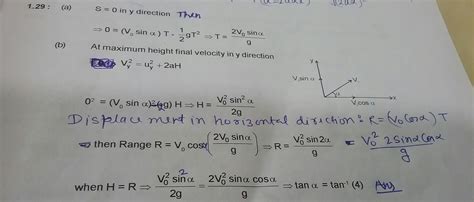 1.29 : (a) S = 0 in y direction Then
⇒ 0 = (V₀ sin α) T - 1/2 gT² ⇒ T = 2V₀ sinα / g
(b) At maximum height final velocity in y direction
V_y² = u_y² + 2aH
0² = (V₀ sin α)² (g) H ⇒ H = V₀² sin² α / 2g
Displacement in horizontal direction: R = (V₀ Cosα) T
⇒ then Range R = V₀ cosα (2V₀ sinα / g) ⇒ R = V₀² sin2α / g = V₀² 2Sinα Cosα / g
when H = R ⇒ V₀² sin² α / 2g = 2V₀² sinα cosα / g ⇒ tan α = tan⁻¹ (4) Ans
y
V₀ sin α
V₀
α
V₀ cos α
x